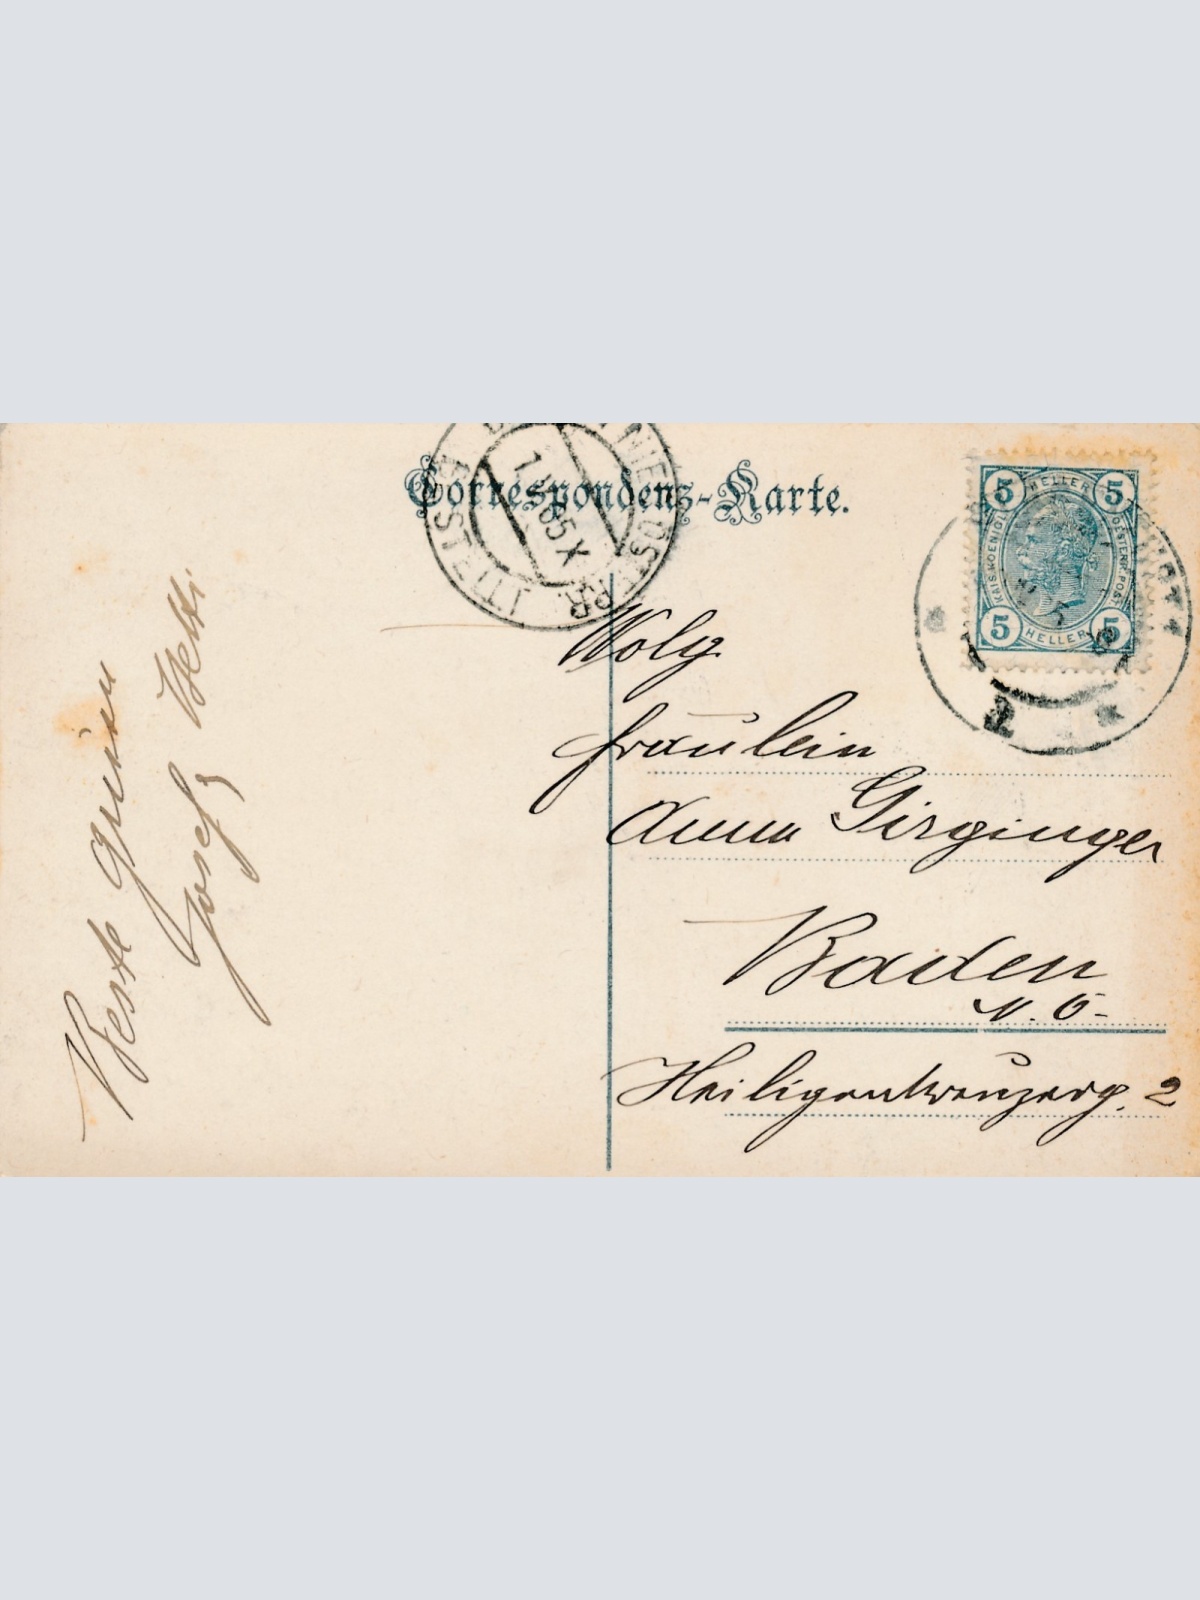 Correspondenz-Karte.
5 HELLER 5
KAIS. KOENIGL.
OESTERR. POST
5 HELLER 5
NIEDERÖSTERR.
BESTELLT
1. 05 X
2
Wolg.
Fräulein
Anna Girginger
Baden
N. Ö.
Heiligenkreuzerg. 2
Beste Grüsse
Josef Betti